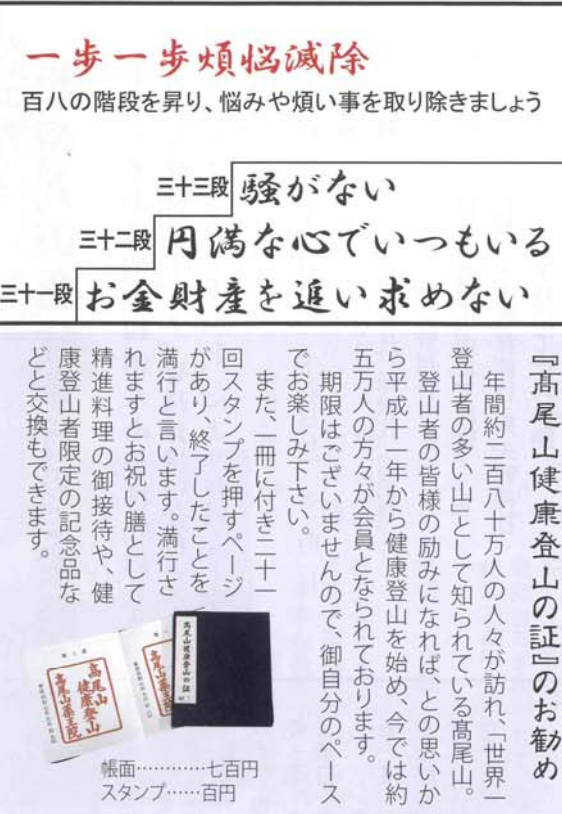 一歩一歩煩悩滅除
百八の階段を昇り、悩みや煩い事を取り除きましょう
三十三段 騒がない
三十二段 円満な心でいつもいる
三十一段 お金財産を追い求めない
『髙尾山健康登山の証』のお勧め
年間約二百八十万人の人々が訪れ、「世界一
登山者の多い山」として知られている髙尾山。
登山者の皆様の励みになれば、との思いか
ら平成十一年から健康登山を始め、今では約
五万人の方々が会員となられております。
期限はございませんので、御自分のペース
でお楽しみ下さい。
また、一冊に付き二十一
回スタンプを押すページ
があり、終了したことを
満行と言います。満行さ
れますとお祝い膳として
精進料理の御接待や、健
康登山者限定の記念品な
どと交換もできます。
髙尾山健康登山の証
高尾山
健康登山
高尾山薬王院
帳面…………七百円
スタンプ……百円